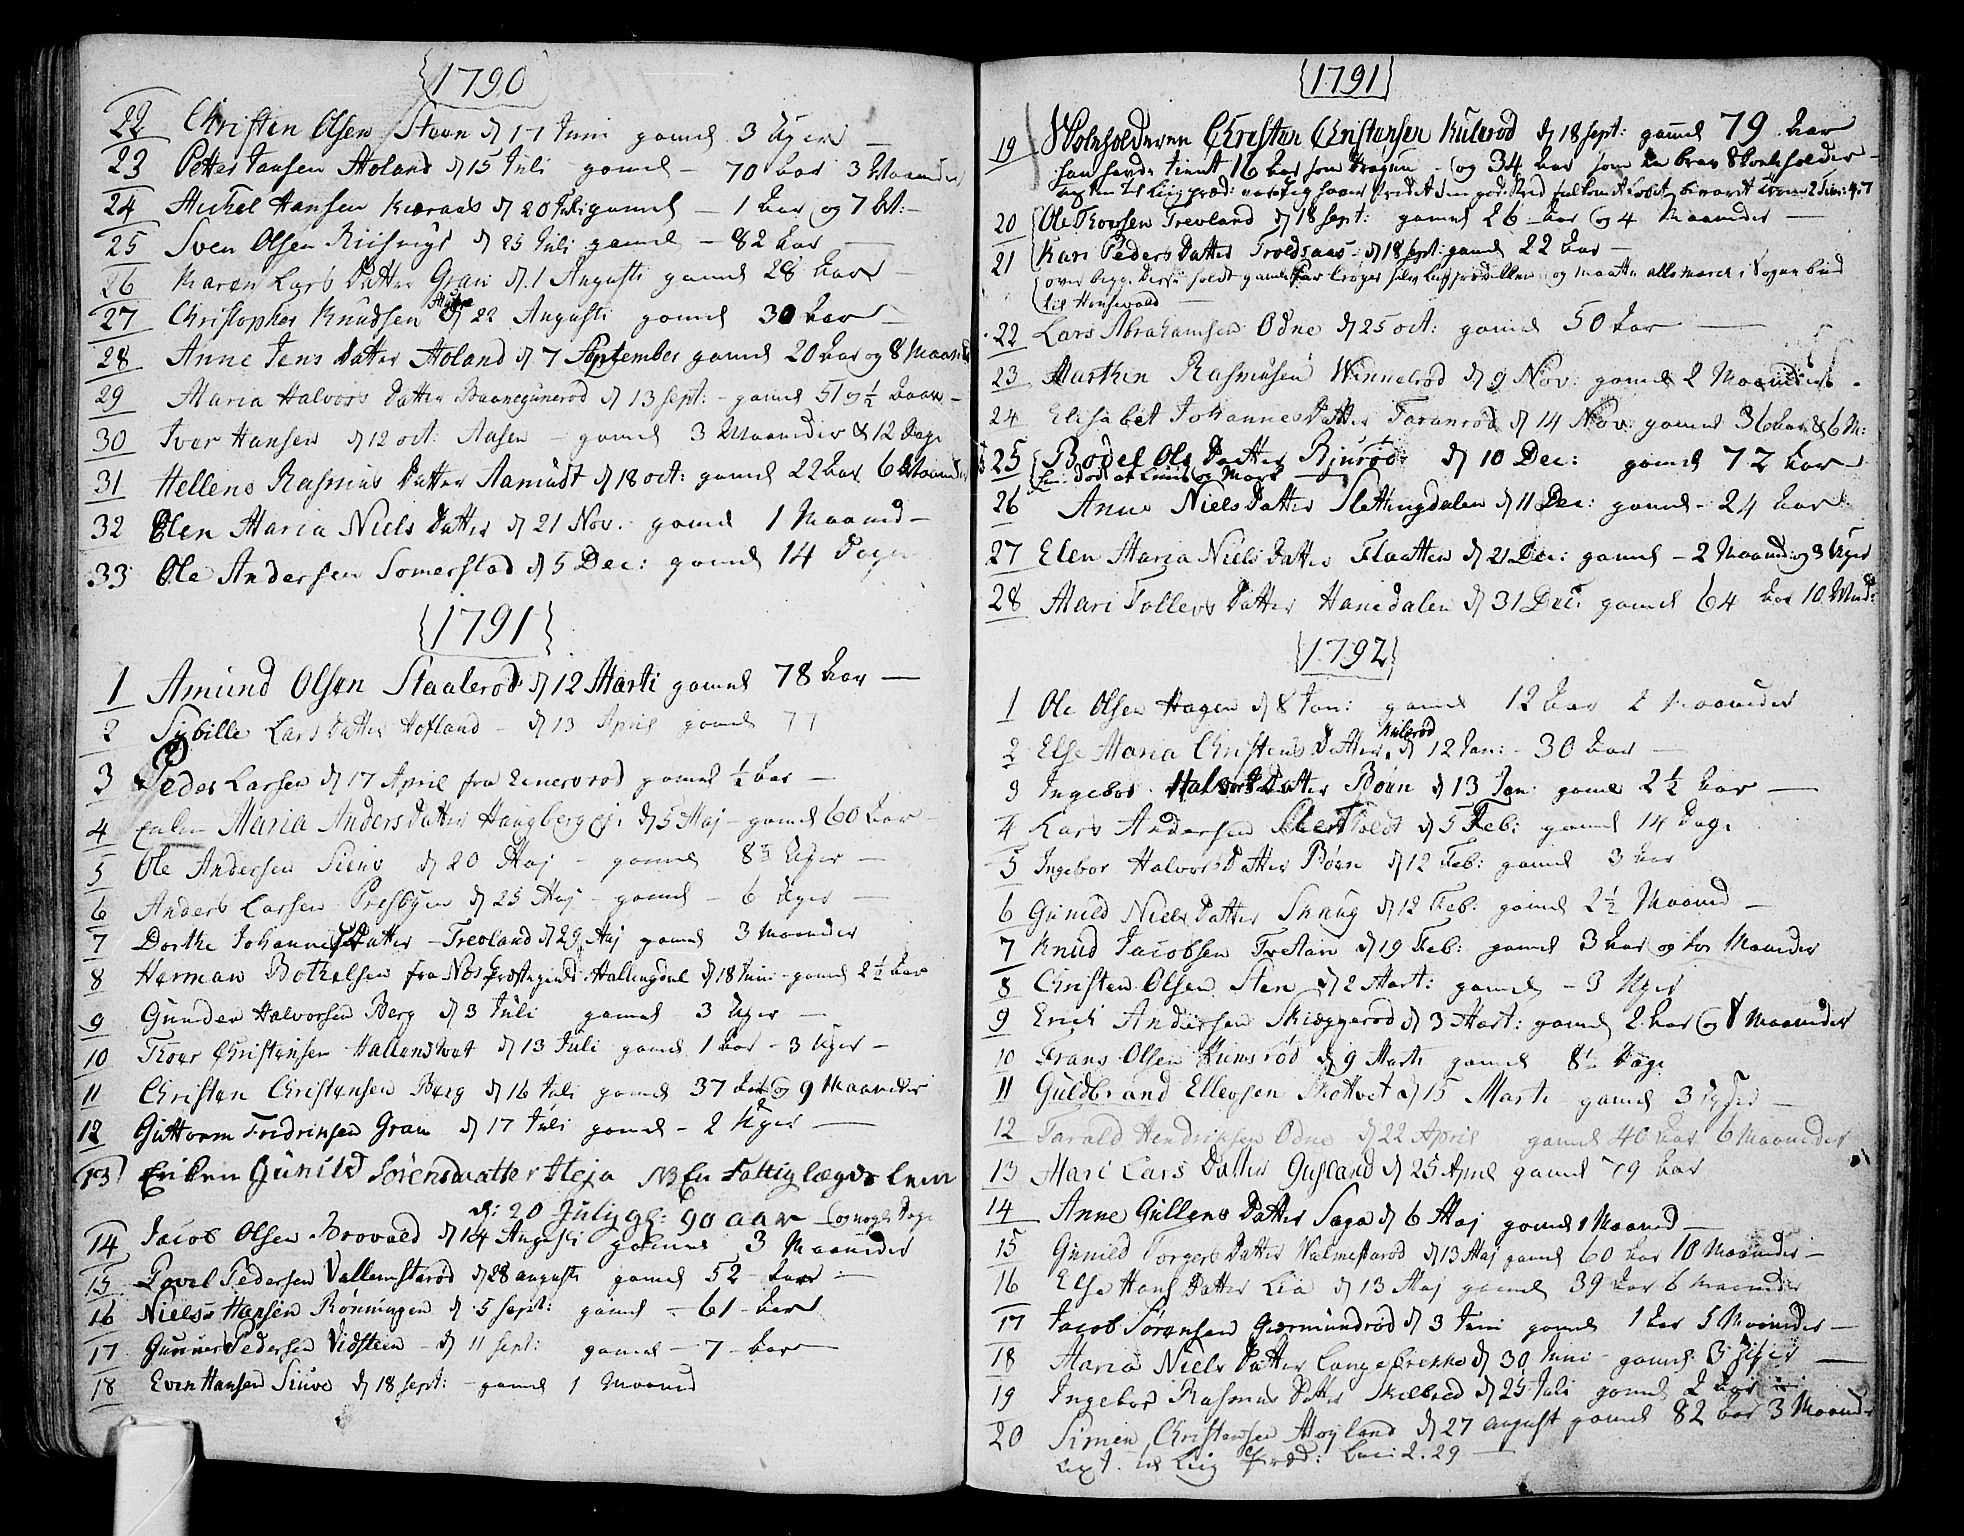 1790
22 Christen Olsen Steen d 17 Juni gamel 3 Uger
23 Petter Jansen Moland d 15 Juli gamel 70 Aar 3 Maaneder
24 Mickel Hansen d 20 Juli gamel 1 Aar og 7
25 Sven Olsen d 25 Juli gamel 82 Aar
26 Maren Lars Datter Gran d. 1 Augusti gamel 28 Aar
27 Christopher Knudsen d 22 Augusti gamel 30 Aar
28 Anne Jens Datter Moland d 7 September gamel 20 Aar og 8 Maaned
29 Maria Halvors Datter d 13 sept: gamel 51 ½ Aar
30 Iver Hansen d 12 oct: Aasen gamel 3 Maaneder & 12 Dage
31 Hellene Rasmus Datter Aamudt d 18 oct: gamel 22 Aar 6 Maaneder
32 Elen Maria Niels Datter d 21 Nov. gamel 1 Maaned
33 Ole Andersen Somerstad d 5 Dec: gamel 14 Dage
1791
1 Amund Olsen Staalerød d 12 Marti gamel 78 Aar
2 Sybille Lars Datter Hofland d 13 April gamel 77
3 Peder Larsen d 17 April fra gamel ½ Aar
4 Maria Anders Datter d 5 Maj gamel 60 Aar
5 Ole Andersen Siuve d 20 Maj gamel 8 Uger
6 Anders Larsen Presbyen d 25 Maj gamel 6 Uger
7 Dorthe Johannes Datter Trevland d 29 Maj gamel 3 Maaneder
8 Herman Botholsen fra Næs Præstegield Hallingdal d 18 Juni gamel 2½ Aar
9 Gunder Halvorsen Berg d 3 Juli gamel 3 Uger
10 Thoer Christensen Hallenstvet d 13 Juli gamel 1 Aar 3 Uger
11 Christen Christensen Berg d 16 Juli gamel 37 Aar og 9 Maaneder
12 Guttorm Fredriksen Gran d 17 Juli gamel 2 Uger
13 Enken Gunild Sørensdatter Heja NB En Fattig lægds Lem
d: 20 July gl: 90 aar og nogle Dage
14 Jacob Olsen Brovald d 14 Augusti gamel 3 Maaneder
15 Povel Pedersen Vallemstarød d 28 augusti gamel 52 Aar
16 Niels Hansen Rønningen d 5 sept: gamel 61 Aar
17 Gunner Pedersen Vidsteen d 11 sept: gamel 7 Aar
18 Even Hansen Siuve d 18 sept: gamel 1 Maaned
1791
19 Skoleholderen Christen Christensen Kulerød d 18 sept: gamel 79 Aar
han havde tient 16 Aar som Dragun og 34 Aar som en brav Skoleholder
20 Ole Thorsen Trevland d 18 sept: gamel 26 Aar og 4 Maaneder
21 Kari Peders Datter Troldsaas d 18 sept: gamel 22 Aar
over begge holdt gamel og maatte
til
22 Lars Abrahamsen Odne d 25 oct: gamel 50 Aar
23 Marthin Rasmusen Winnelrød d 9 Nov: gamel 2 Maaneder
24 Elisabet Johannes Datter Faranrød d 14 Nov: gamel 36 Aar & 6 M:
25 Bodel Ole Datter Bjurød d 10 Dec: gamel 72 Aar
26 Anne Niels Datter Slettingdalen d 11 Dec: gamel 24 Aar
27 Elen Maria Niels Datter Flaatten d 21 Dec: gamel 2 Maaned og 3 Uger
28 Mari Tollevs Datter Hanedalen d 31 Dec: gamel 64 Aar 10 Mnd:
1792
1 Ole Olsen Hagen d 8 Jan: gamel 12 Aar 2 Maaneder
Kulerød
2 Else Maria Christens Datter d 12 Jan: 30 Aar
3 Ingebor Halvors Datter Bøen d 13 Jan: gamel 2½ Aar
4 Lars Andersen d 5 Feb: gamel 14 Dage
5 Ingebor Halvors Datter Bøen d 12 Feb: gamel 3 Aar
6 Gunild Niels Datter Skaug d 12 Feb: gamel 2½ Maaned
7 Knud Jacobsen d 19 Feb: gamel 3 Aar og Maaneder
8 Christen Olsen Steen d 2 Mart: gamel 3 Uger
9 Erich Andersen Skieggerød d 3 Mart: gamel 2 Aar og 8 Maaneder
10 Frans Olsen Rumsrød d 9 Marti gamel 8½ Dage
11 Guldbrand Ellevsen d 15 Marti gamel 3 Uger
12 Tarald Hendriksen Odne d 22 April gamel 40 Aar 6 Maaneder
13 Mari Lars Datter Gusland d 25 April gamel 79 Aar
14 Anne Gullens Datter Saga d 6 Maj gamel 1 Maaned
15 Gunild Torgers Datter Valmestarød d 13 Maj gamel 60 Aar 10 Maaneder
16 Else Hans Datter Lia d 13 Maj gamel 39 Aar 6 Maaneder
17 Jacob Sørensen Giermundrød d 3 Juni gamel 1 Aar 5 Maaneder
18 Maria Niels Datter Langebrekke d 30 Juni gamel 3 Uger
19 Ingebor Rasmus Datter Skilbred d 25 Juli gamel 2 Aar
20 Simen Christensen Moyland d 27 august gamel 82 Aar 3 Maaneder
text til Liig præd: Luc: 2. 29